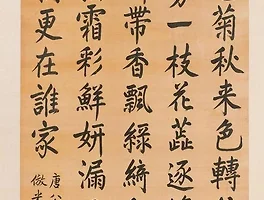 菊秋来色轉
一枝花蕋逐
帶香飄綠綺
霜彩鮮妍漏
更在誰家
唐公
倣米